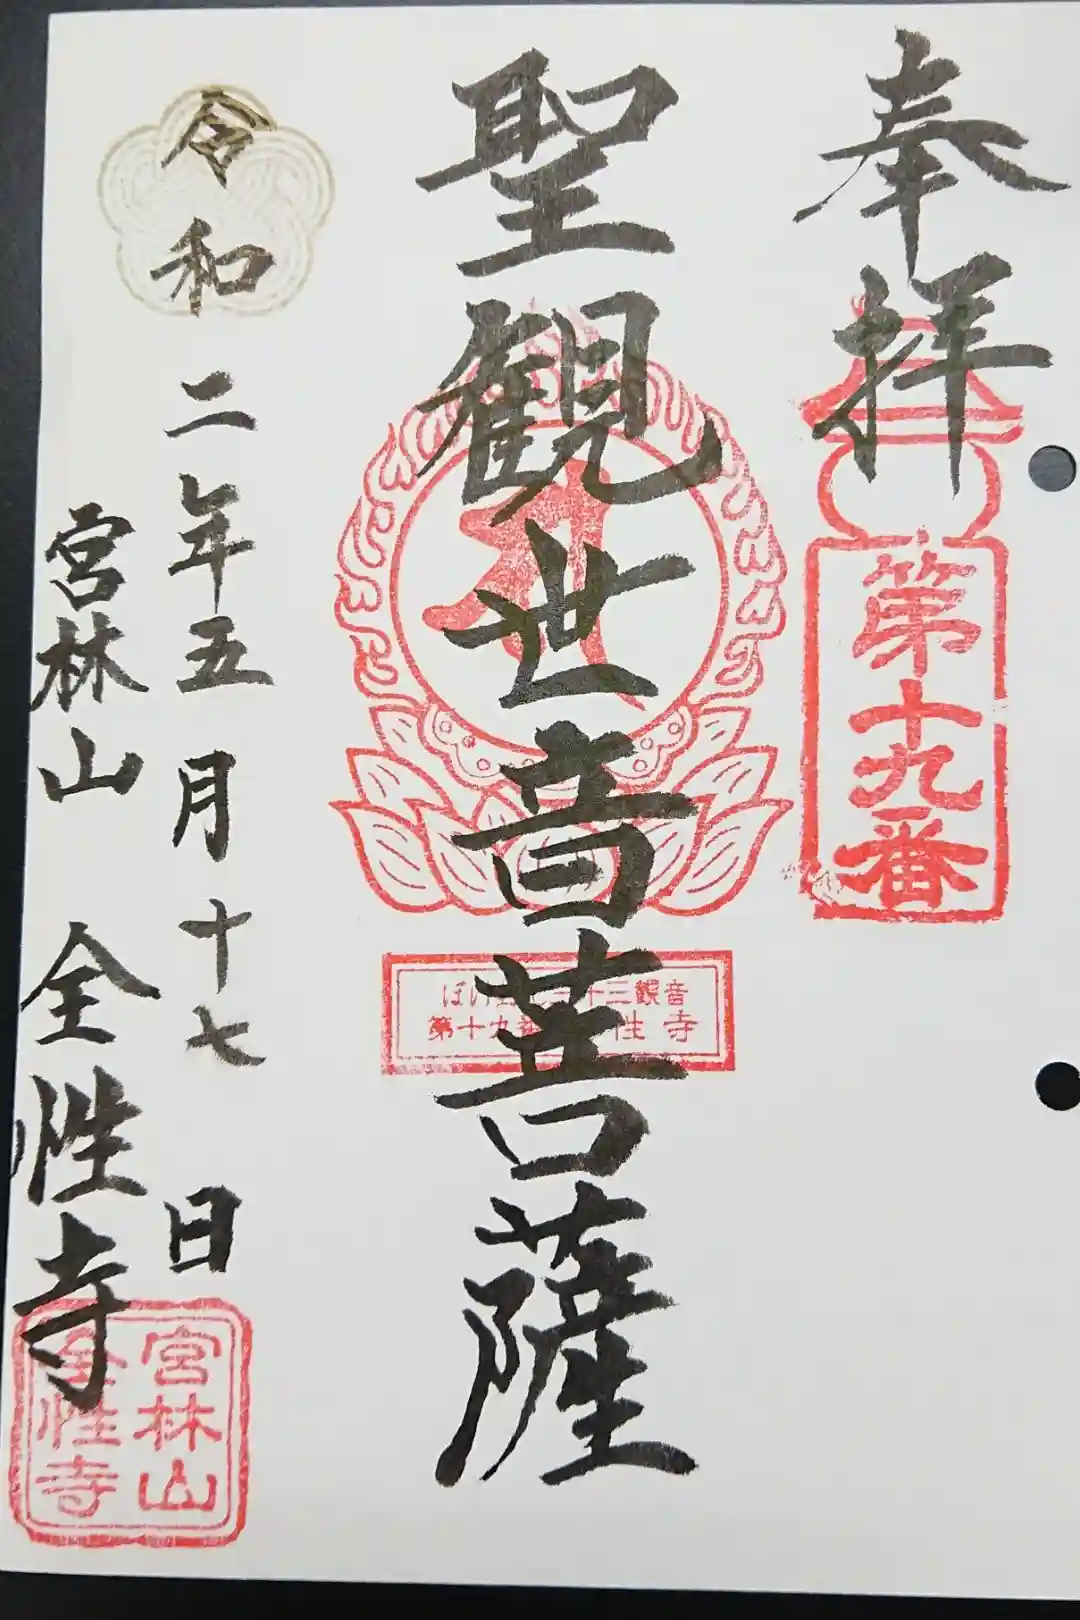 奉拝
第十九番
聖観世音菩薩
三十三観音
第十九番 性寺
令和二年五月十七日
宮林山 全性寺
宮林山
全性寺